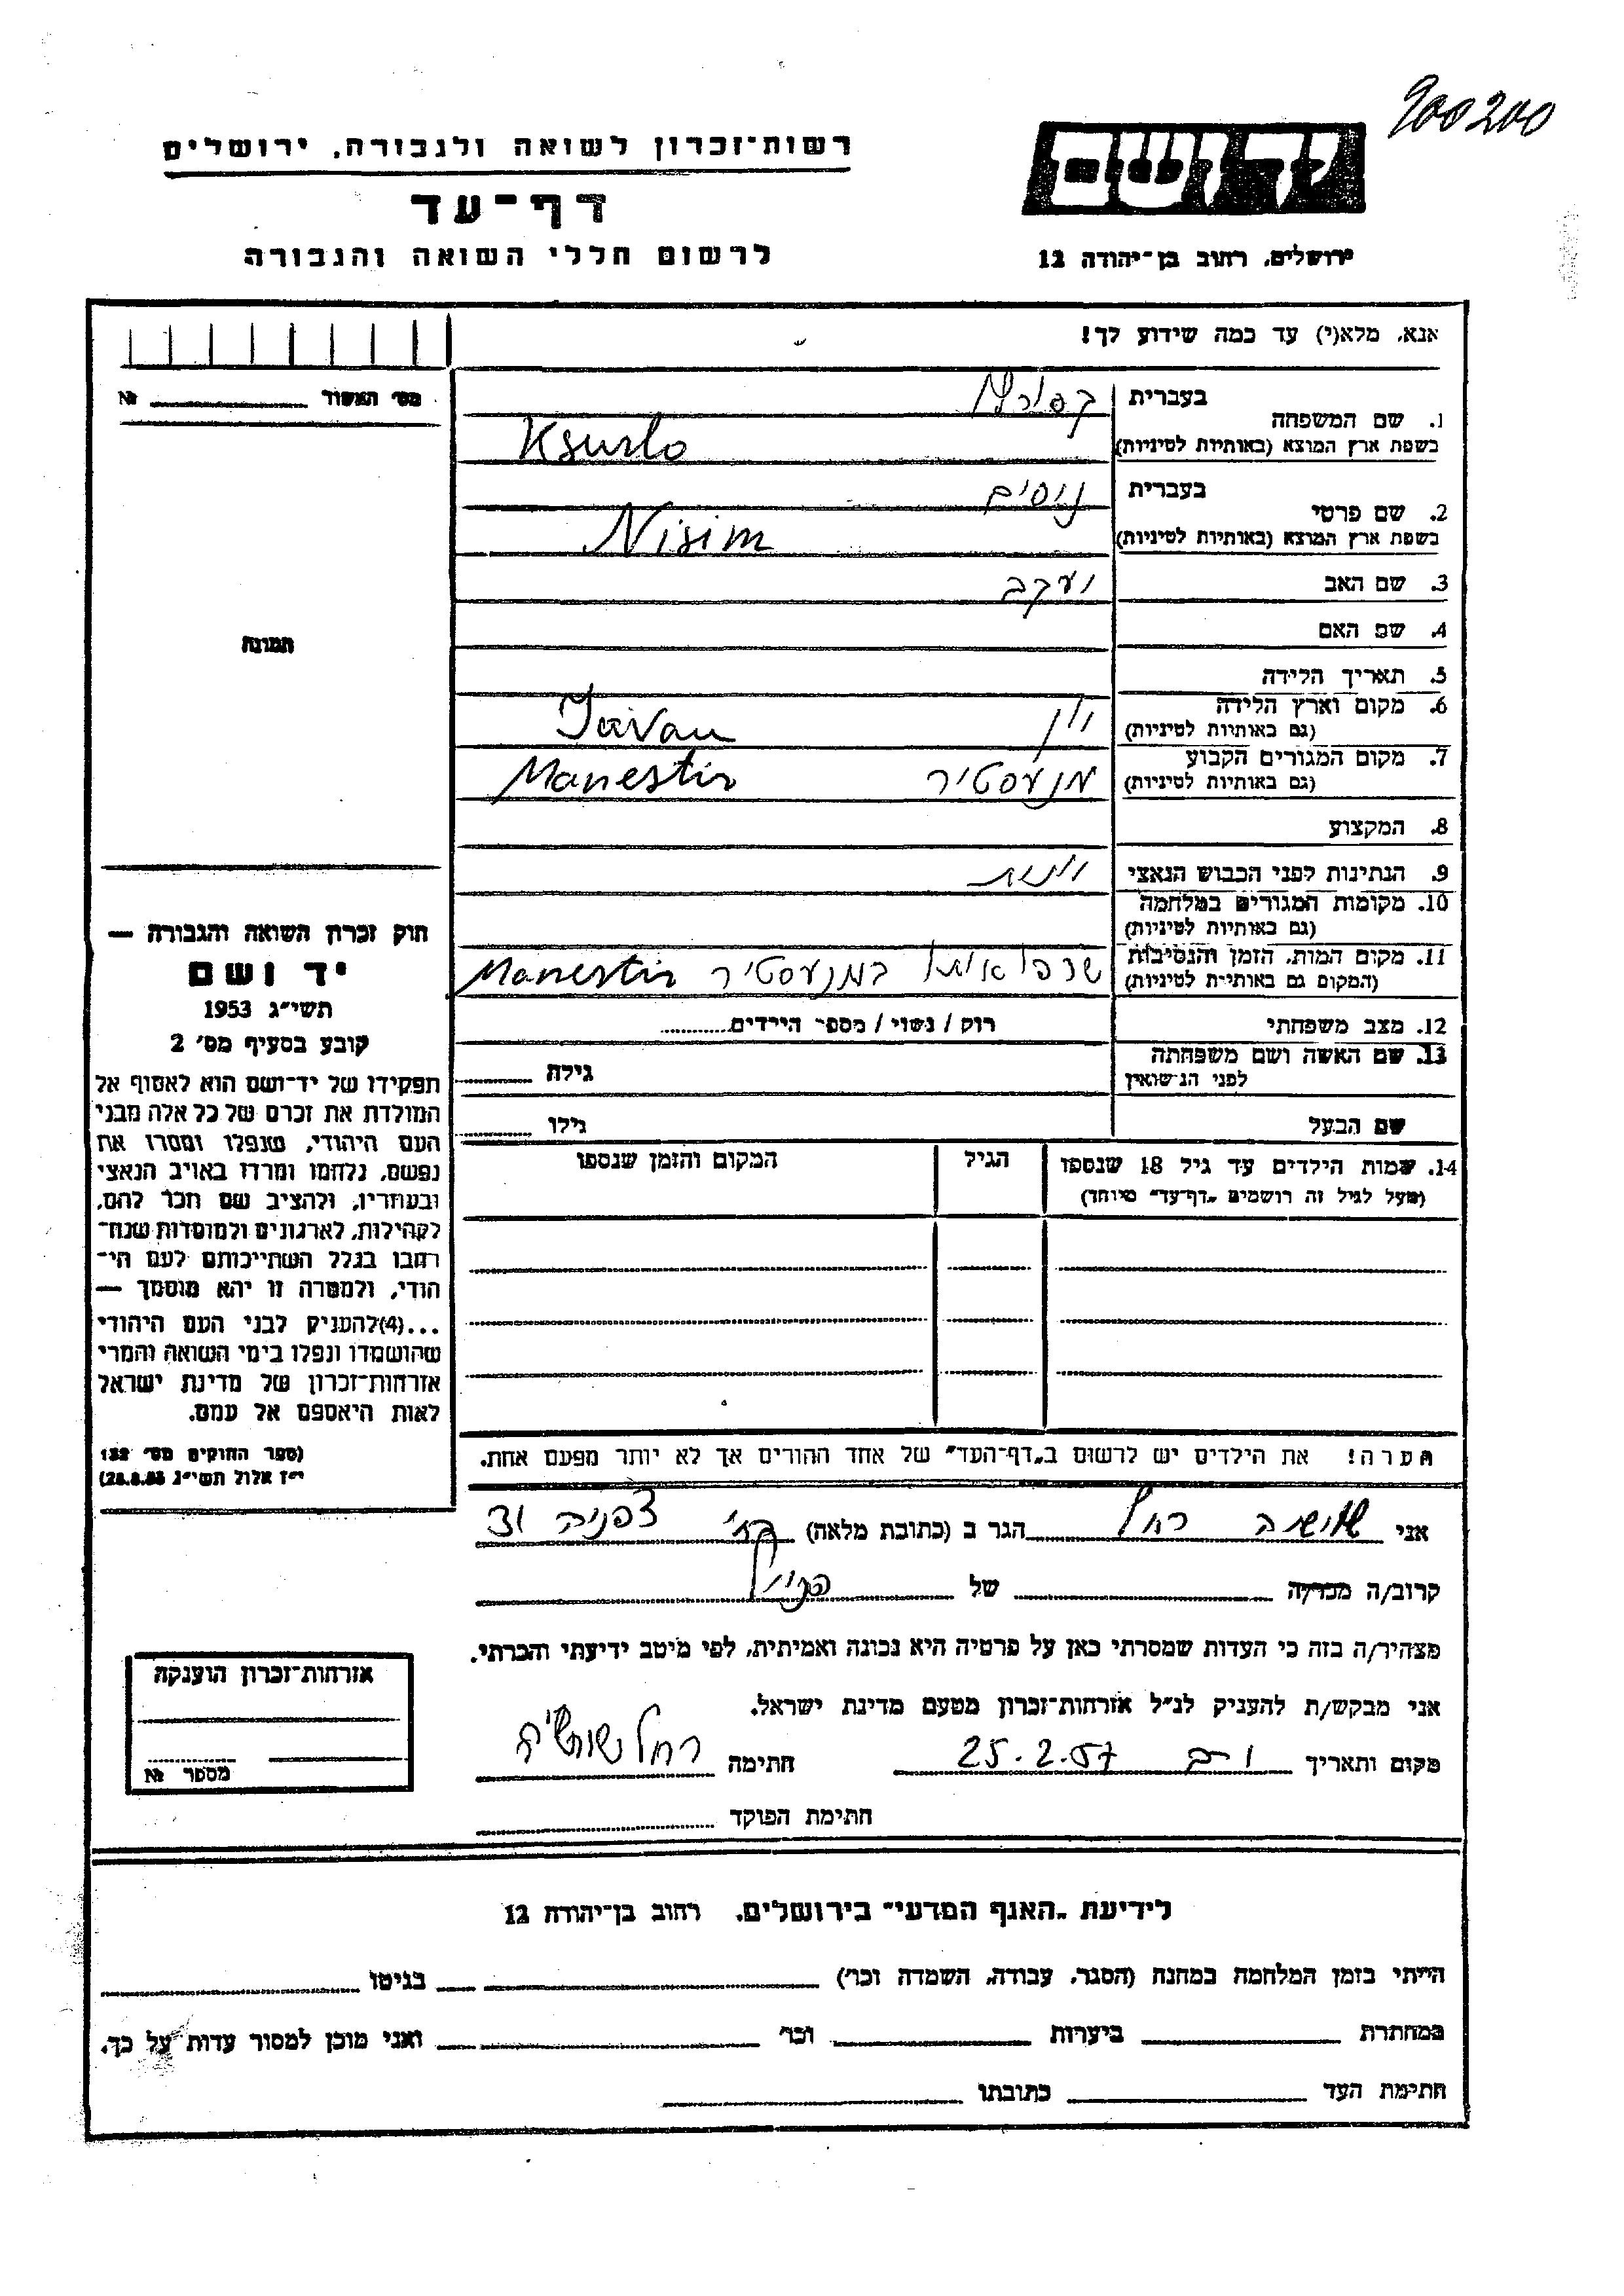 900200
רשות־זכרון לשואה ולגבורה, ירושלים
דף־עד
לרשום חללי השואה והגבורה
יד ושם
ירושלים, רחוב בן־יהודה 12
אנא, מלא(י) עד כמה שידוע לך!
מס׳ האשור № 
1. שם המשפחה
בעברית
בשפת ארץ המוצא (באותיות לטיניות) Ksurlo
2. שם פרטי
בעברית ניסים
בשפת ארץ המוצא (באותיות לטיניות) Nisim
3. שם האב יעקב
4. שם האם
תמונה
5. תאריך הלידה
6. מקום וארץ הלידה יון Javan
(גם באותיות לטיניות)
7. מקום המגורים הקבוע מנעסטיר Manestir
(גם באותיות לטיניות)
8. המקצוע
9. הנתינות לפני הכבוש הנאצי
10. מקומות המגורים במלחמה
(גם באותיות לטיניות)
11. מקום המות, הזמן והנסיבות שרפו אותו במנעסטיר Manestir
(המקום גם באותיות לטיניות)
12. מצב משפחתי רוק / נשוי / מספר הילדים
13. שם האשה ושם משפחתה
לפני הנישואין גילה
שם הבעל גילו
14. שמות הילדים עד גיל 18 שנספו
(מעל לגיל זה רושמים „דף־עד״ מיוחד)
הגיל
המקום והזמן שנספו
חוק זכרון השואה והגבורה —
יד ושם
תשי״ג 1953
קובע בסעיף מס׳ 2
תפקידו של יד־ושם הוא לאסוף אל
המולדת את זכרם של כל אלה מבני
העם היהודי, שנפלו ומסרו את
נפשם, נלחמו ומרדו באויב הנאצי
ובעוזריו, ולהציב שם וזכר להם,
לקהילות, לארגונים ולמוסדות שנח־
רבו בגלל השתייכותם לעם הי־
הודי, ולמטרה זו יהא מוסמך —
...(4)להעניק לבני העם היהודי
שהושמדו ונפלו בימי השואה והמרי
אזרחות־זכרון של מדינת ישראל
לאות היאספם אל עמם.
(ספר החוקים מס׳ 132
י״ז אלול תשי״ג 28.8.53)
הערה! את הילדים יש לרשום ב„דף־העד״ של אחד ההורים אך לא יותר מפעם אחת.
אני רחל הגר ב (כתובת מלאה) צפניה
קרוב/ה מכר/ה של
מצהיר/ה בזה כי העדות שמסרתי כאן על פרטיה היא נכונה ואמיתית, לפי מיטב ידיעתי והכרתי.
אני מבקש/ת להעניק לנ״ל אזרחות־זכרון מטעם מדינת ישראל.
מקום ותאריך 25.2.57 חתימה רחל
חתימת הפוקד
אזרחות־זכרון הוענקה
מספר №
לידיעת „האגף המדעי״ בירושלים, רחוב בן־יהודה 12
הייתי בזמן המלחמה במחנה (הסגר, עבודה, השמדה וכו׳) בגיטו
במחתרת ביערות וכו׳ ואני מוכן למסור עדות על כך.
חתימת העד כתובתו